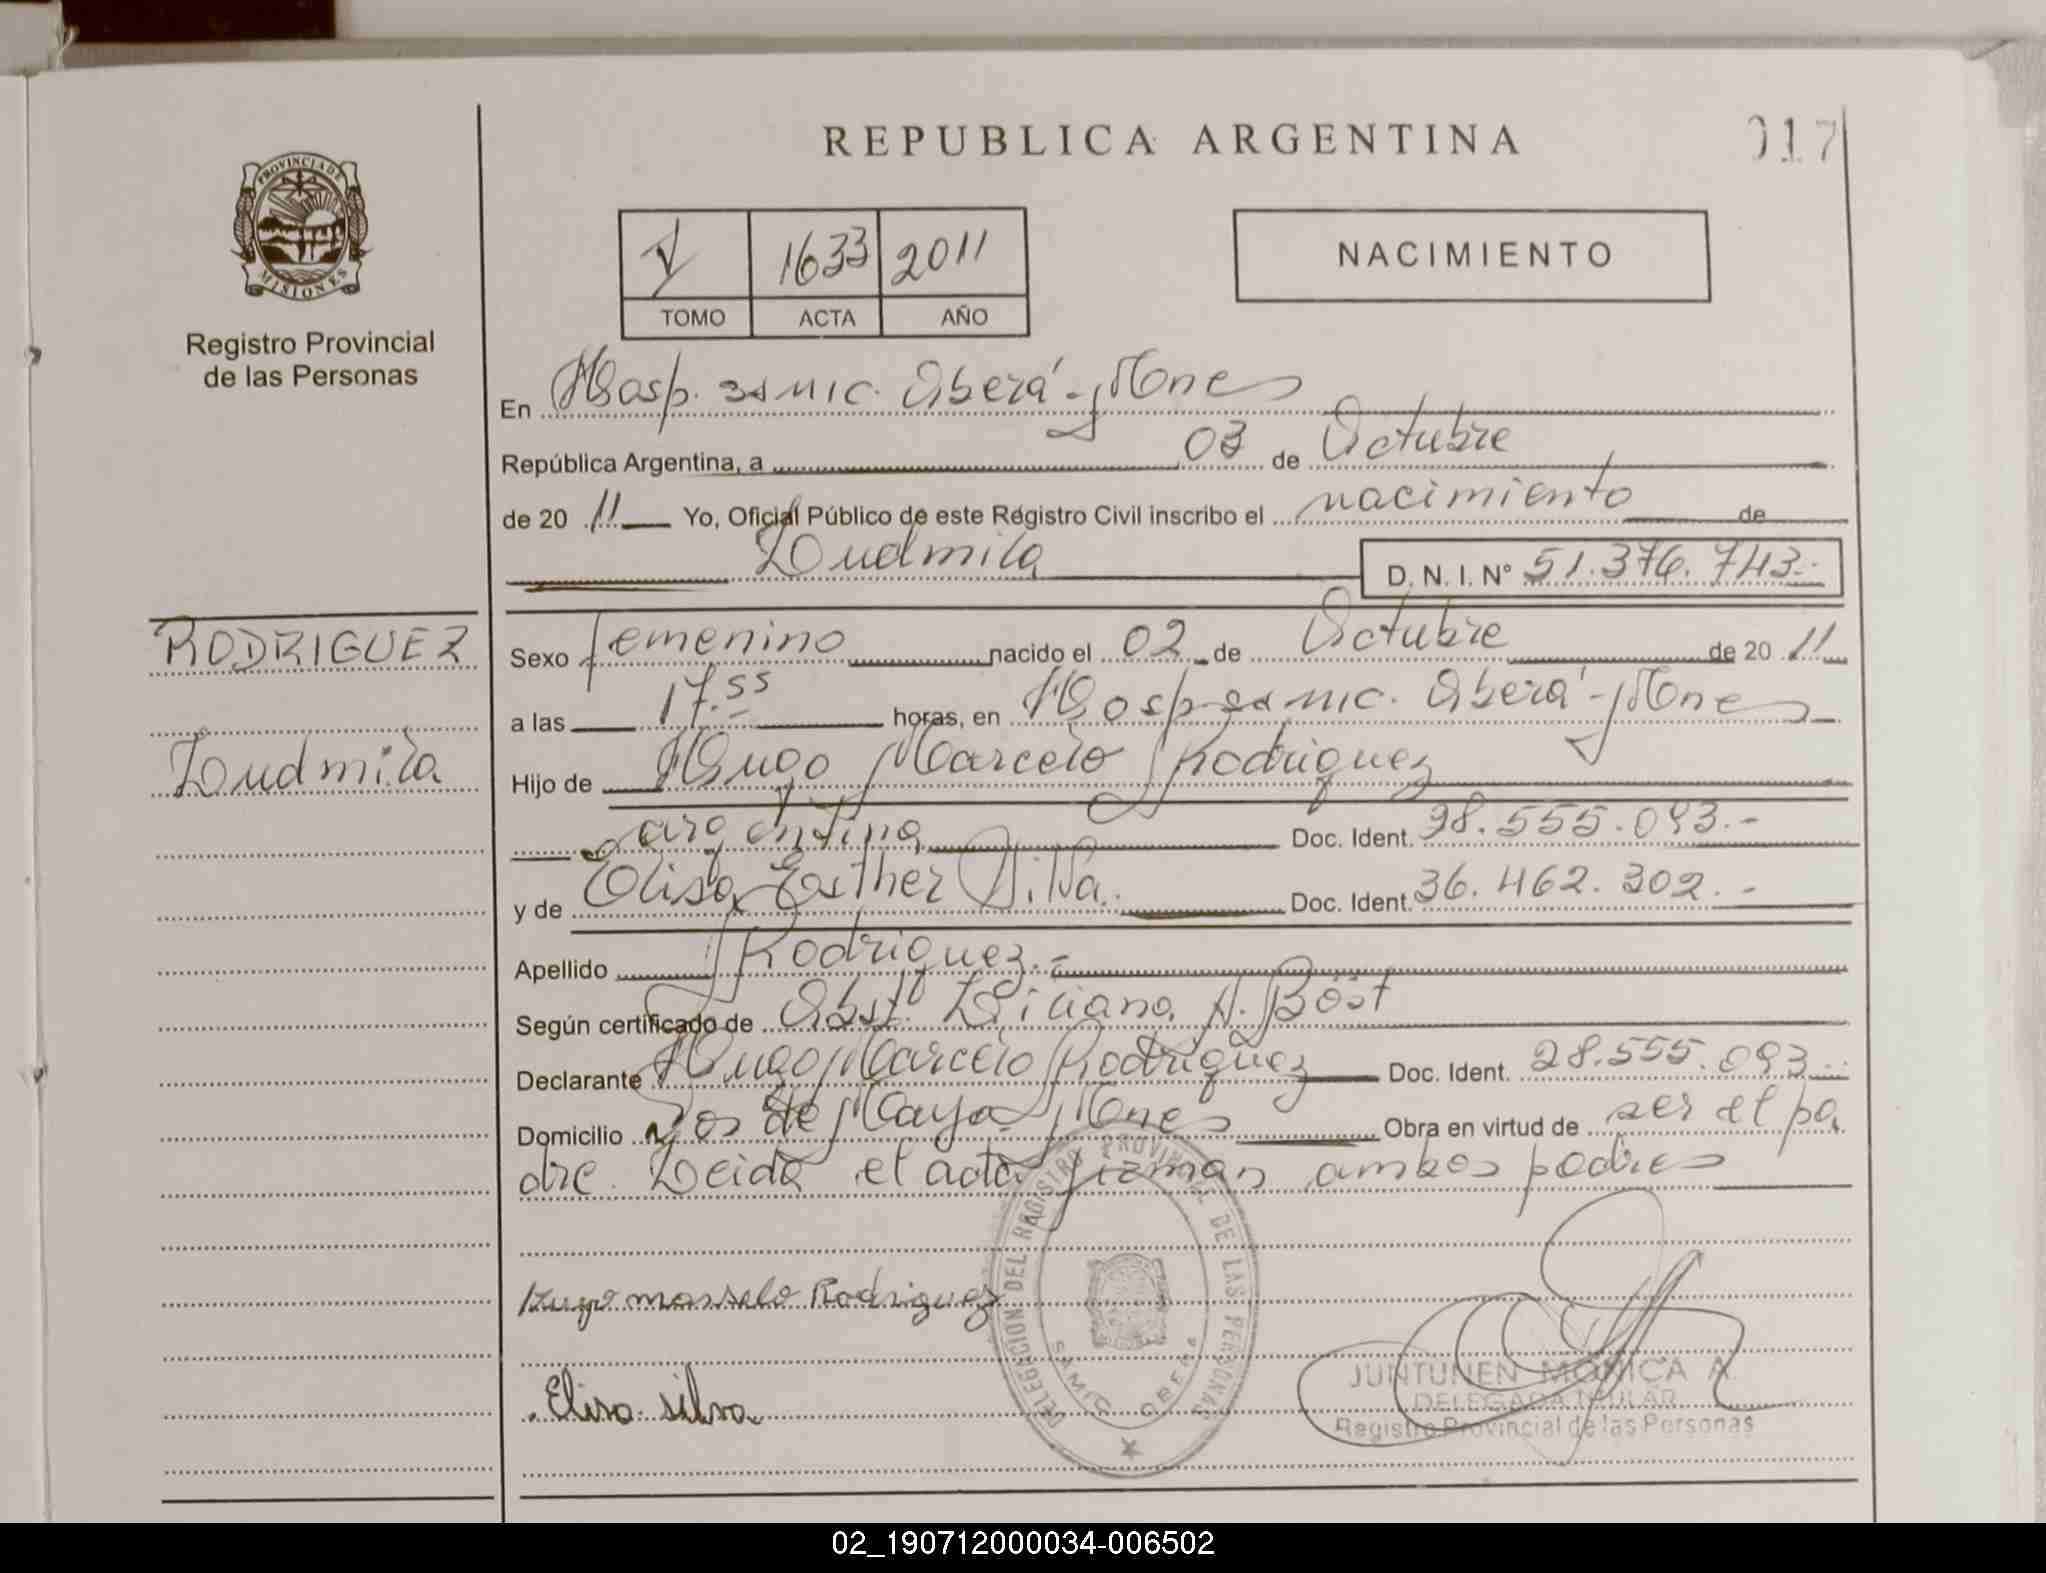 REPUBLICA ARGENTINA
017
PROVINCIA DE
MISIONES
Registro Provincial
de las Personas
V 1633 2011
TOMO ACTA AÑO
NACIMIENTO
En Hosp. samic. Oberá - Mnes
República Argentina, a 03 de Octubre
de 20 11 Yo, Oficial Público de este Registro Civil inscribo el nacimiento de
Ludmila D. N. I. N° 51.376.743.-
RODRIGUEZ
Ludmila
Sexo femenino nacido el 02 de Octubre de 20 11
a las 17.55 horas, en Hosp samic. Oberá - Mnes
Hijo de Hugo Marcelo Rodriguez
argentina Doc. Ident. 28.555.093.-
y de Elisa Esther Silva. Doc. Ident. 36.462.302.-
Apellido Rodriguez.-
Según certificado de Obst. Liliana A. Böst
Declarante Hugo Marcelo Rodriguez Doc. Ident. 28.555.093.-
Domicilio 2 os de Mayo Mnes Obra en virtud de ser el pa
dre. Leida el acta firman ambos padres
DELEGACION DEL REGISTRO PROVINCIAL DE LAS PERSONAS
SAMIC OBERA
Hugo marselo Rodriguez
Elisa silva
JUNTUNEN MONICA A.
DELEGADA TITULAR
Registro Provincial de las Personas
02_190712000034-006502